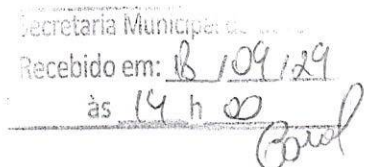 Secretaria Municipal de
Recebido em: 18 / 09 / 29
às 14 h 00